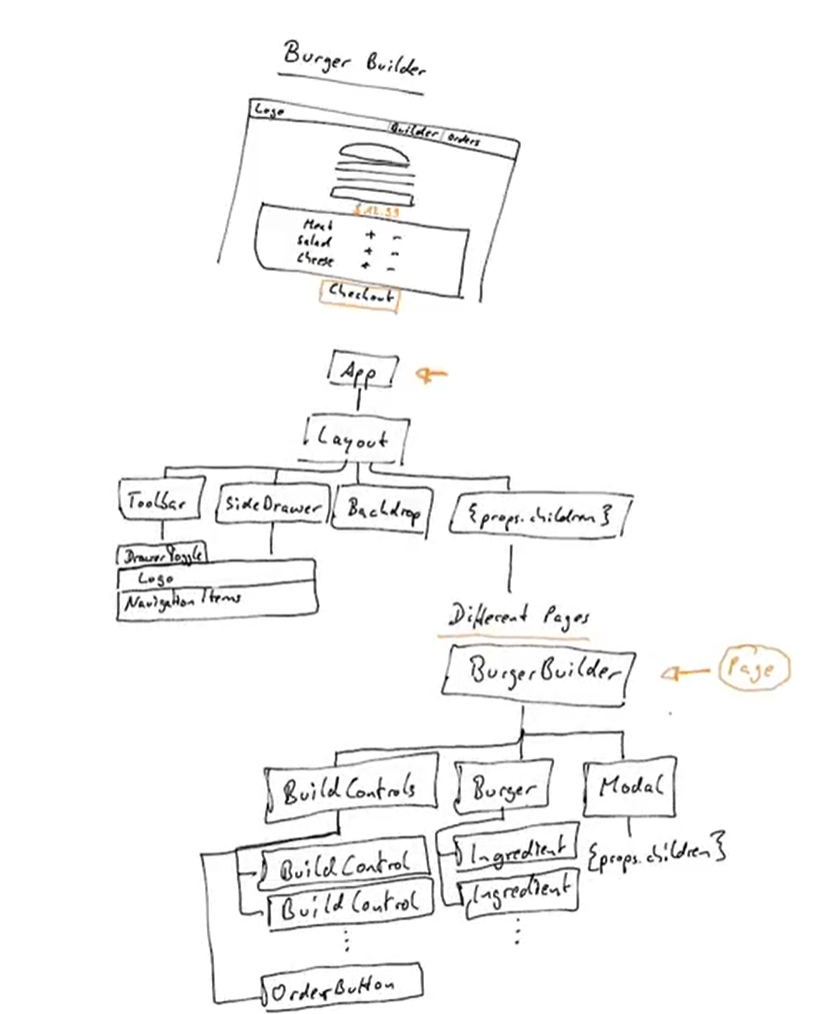 Burger Builder
Logo
Builder Orders
$12.99
Meat + -
Salad + -
Cheese + -
Checkout
App
Layout
Toolbar SideDrawer Backdrop {props.children}
DrawerToggle
Logo
Navigation Items
Different Pages
BurgerBuilder
Page
BuildControls Burger Modal
BuildControl Ingredient {props.children}
BuildControl Ingredient
OrderButton